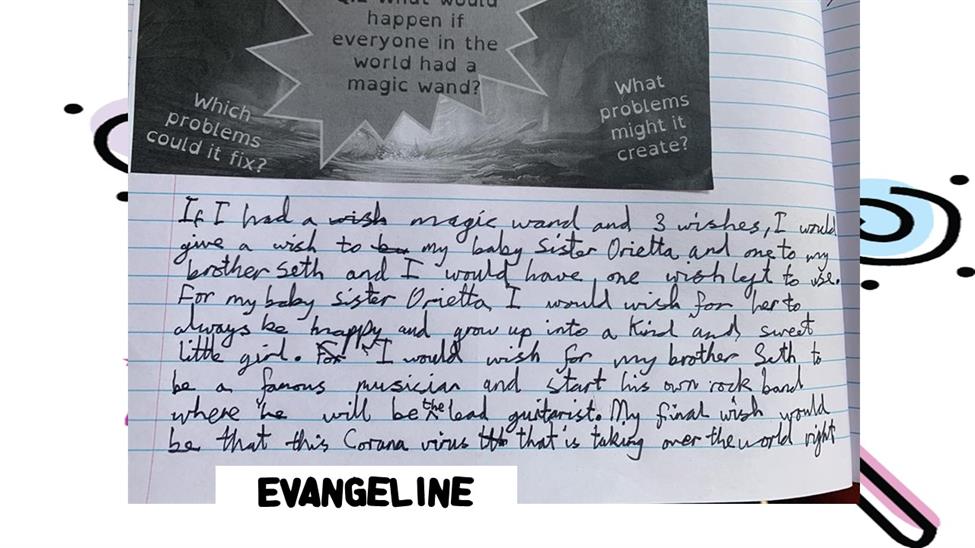 Q.2 What would
happen if
everyone in the
world had a
magic wand?
Which
problems
could it fix?
What
problems
might it
create?
If I had a wish magic wand and 3 wishes, I would
give a wish to my baby sister Orietta and one to my
brother Seth and I would have one wish left to use.
For my baby sister Orietta I would wish for her to
always be happy and grow up into a kind and sweet
little girl. For I would wish for my brother Seth to
be a famous musician and start his own rock band
where he will be the lead guitarist. My final wish would
be that this Corana virus that is taking over the world right
EVANGELINE